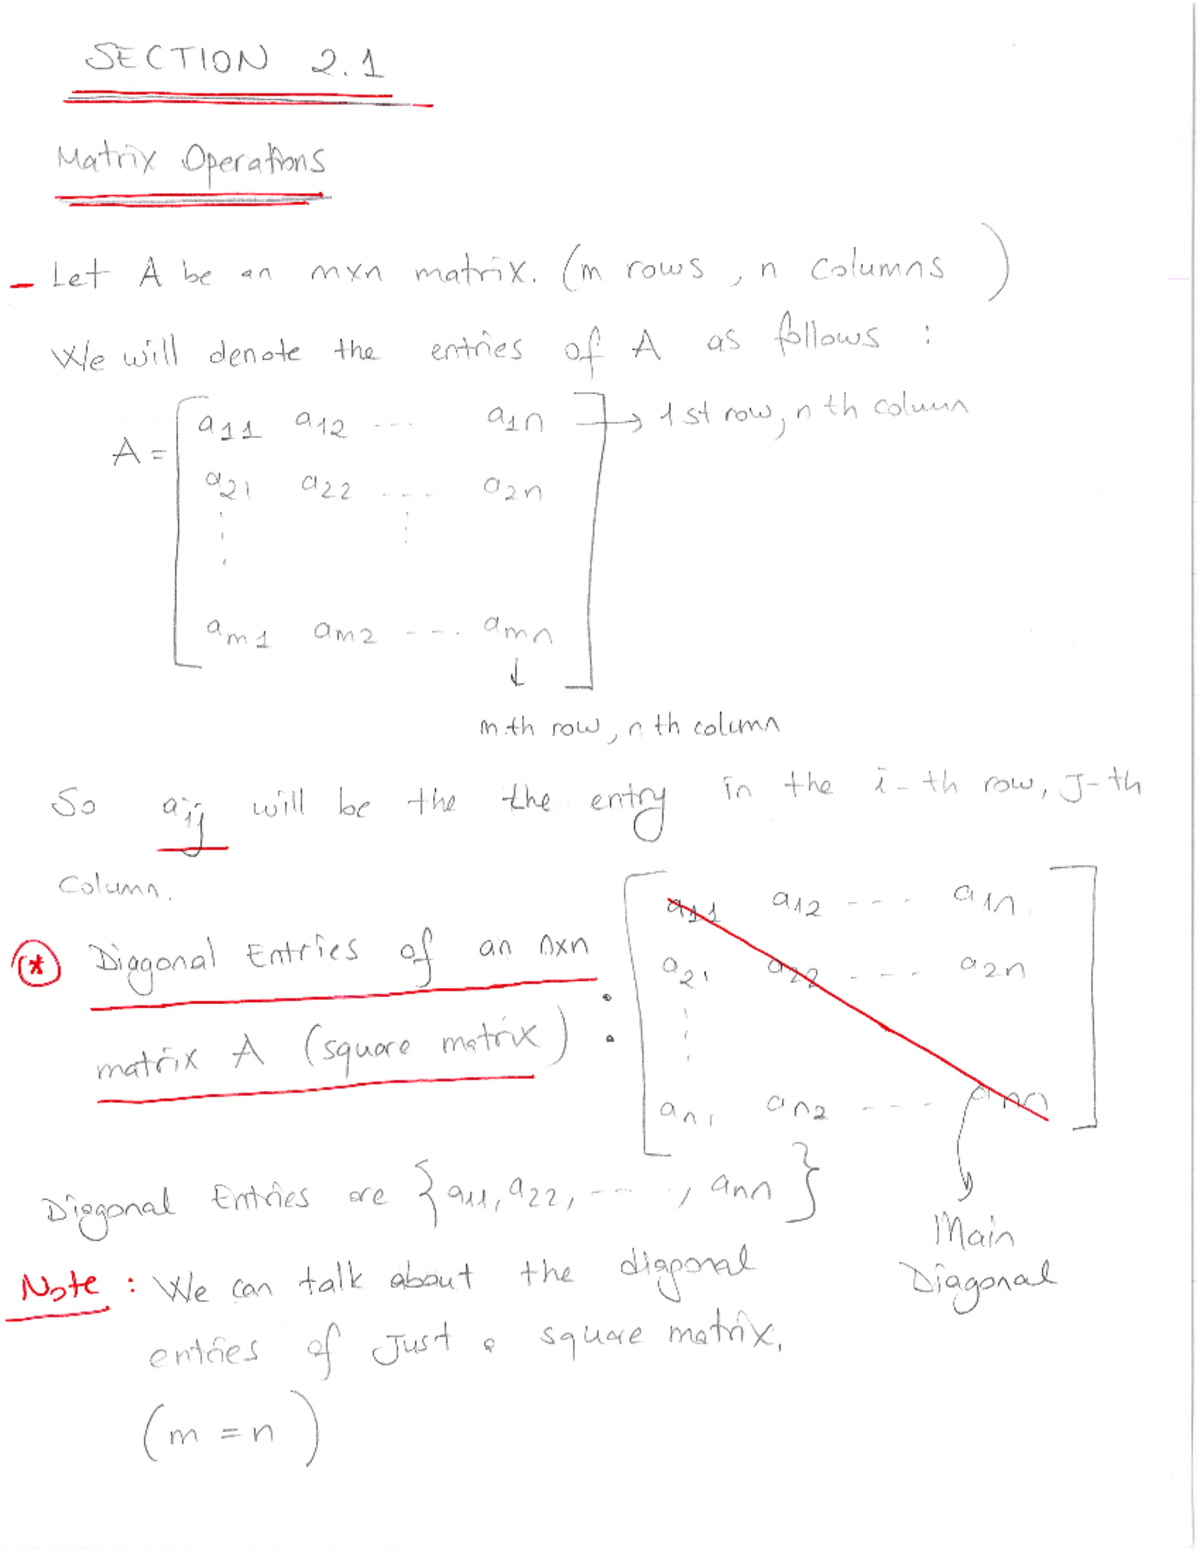 SECTION 2.1
Matrix Operations
- Let A be an mxn matrix. (m rows, n columns)
We will denote the entries of A as follows :
A = [ a11 a12 ... a1n ] → 1st row, n th column
a21 a22 .... a2n
am1 am2 ---. amn
↓
m.th row, n th column
So aij will be the the entry in the i-th row, J-th
Column.
(*) Diagonal Entries of an nxn
matrix A (square matrix) :
[ a11 a12 ---- a1n
a21 a22 ---- a2n
an1 an2 ---- ann ]
Diagonal Entries are {a11, a22, ----, ann}
Main
Diagonal
Note : We can talk about the diagonal
entries of Just a square matrix.
(m = n)